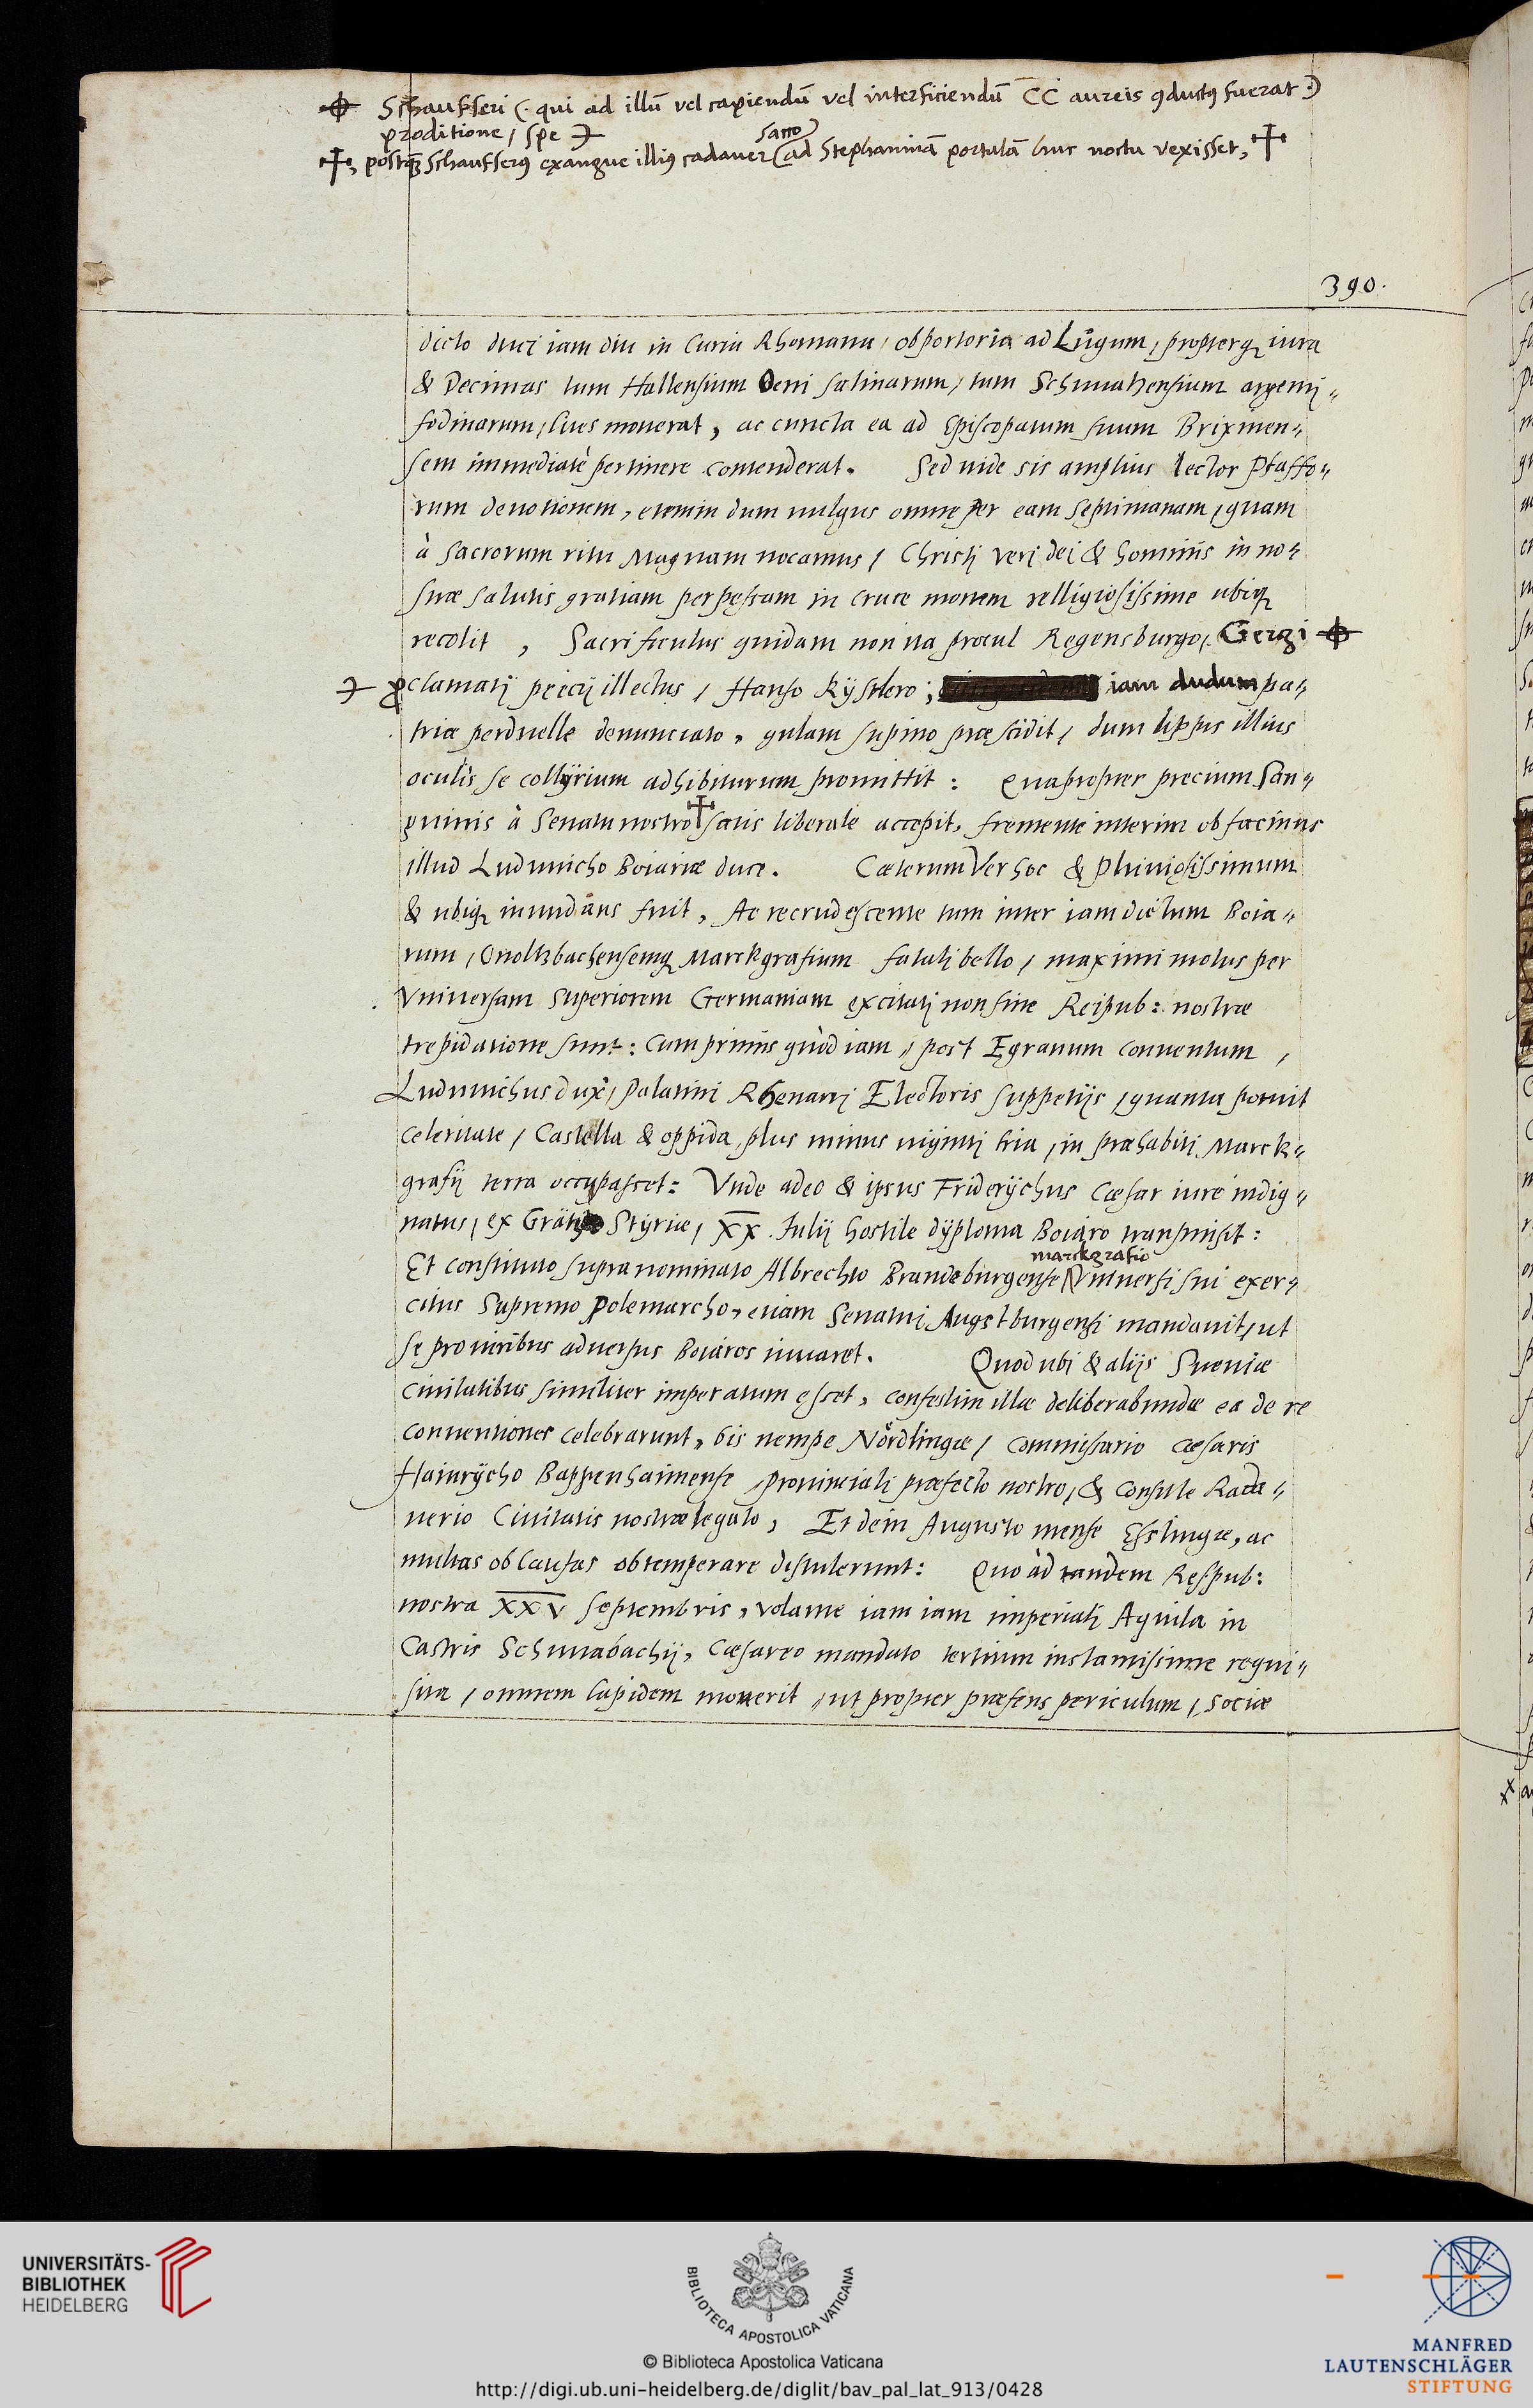 Schaufferi (· qui ad illū vel capiendū vel interficiendū CC aureis ꝯductꝰ fuerat ·)
proditione, spe
postꝙ Schaufferꝰ exangue illiꝰ cadauer (sacco) ad Stephaninā portulā huc noctu vexisset,
390.
dicto duci iam diu in Curia Rhomana, ob portoria ad Lůgum, propterqꝫ iura
& Decimas tum Hallensium Oeni salinarum, tum Schuuahensium argenti⸗
fodinarum, lites mouerat, ac cuncta ea ad Episcopatum suum Brixinen⸗
sem immediatè pertinere contenderat. Sed uide sis amplius lector Pfaffo⸗
rum deuotionem, etenim dum uulgus omne per eam septimanam, quam
à sacrorum ritu Magnam uocamus, Christi veri dei & hominis in no⸗
stræ salutis gratiam perpessam in cruce mortem relligiosissime ubiqꝫ
recolit, Sacrificulus quidam non ita procul Regensburgo, Geırgi
ꝓclamatj precij illectus, Hanso Rystlero, iam dudum pa⸗
triæ perduelle denunciato, gulam supino præscidit, dum lippus illius
oculis se collyrium adhibiturum promittit: Quapropter precium san⸗
guinis à Senatu nostro satis liberale accepit, fremente interim ob facinus
illud Luduuicho Boiariæ duce. Cæterum Ver hoc & pluuiosissimum
& ubiqꝫ inundans fuit, Ac recrudescente tum inter iam dictum Boia⸗
rum, Onoltzbachensemqꝫ Marckgrafium fatali bello, maximi motus per
Vniuersam superiorem Germaniam excitatj non sine Reipub: nostræ
trepidatione sunt: Cum primis quòd iam, post Egranum conuentum,
Luduuichus dux, Palatini Rhenanj Electoris suppetijs, quanta potuit
celeritate, Castella & oppida, plus minus uiginti tria, in præhabiti Marck⸗
grafij terra occupasset: Vnde adeo & ipsus Friderychus Cæsar iure indig⸗
natus, ex Grätz Styriæ, XX. Julij hostile dyploma Boiaro transmisit:
marckgrafio
Et constituto supranominato Albrechto Brandeburgense Vniuersi sui exer⸗
citus supremo Polemarcho, etiam Senatui Augstburgensi mandauit, ut
se pro uiribus aduersus Boiaros iuuaret. Quod ubi & alijs Sueuiæ
Ciuitatibus similiter imperatum esset, confestim illæ deliberabundæ ea de re
conuentiones celebrarunt, bis nempe Nördlingæ, commissario cæsaris
Hainrycho Bappenhaimense, prouinciali præfecto nostro, & Consule Rada⸗
uerio Ciuitatis nostræ legato, Et dein Augusto mense Esslingæ, ac
multas ob causas obtemperare distulerunt: Quoàd tandem Respub:
nostra XXV Septembris, volante iam iam imperiali Aquila in
Castris Schuuabachij, Cæsareo mandato tertium instantissime requi⸗
sita, omnem lapidem mouerit, ut propter præsens periculum, sociæ
UNIVERSITÄTS-
BIBLIOTHEK
HEIDELBERG
BIBLIOTECA APOSTOLICA VATICANA
© Biblioteca Apostolica Vaticana
http://digi.ub.uni-heidelberg.de/diglit/bav_pal_lat_913/0428
MANFRED
LAUTENSCHLÄGER
STIFTUNG